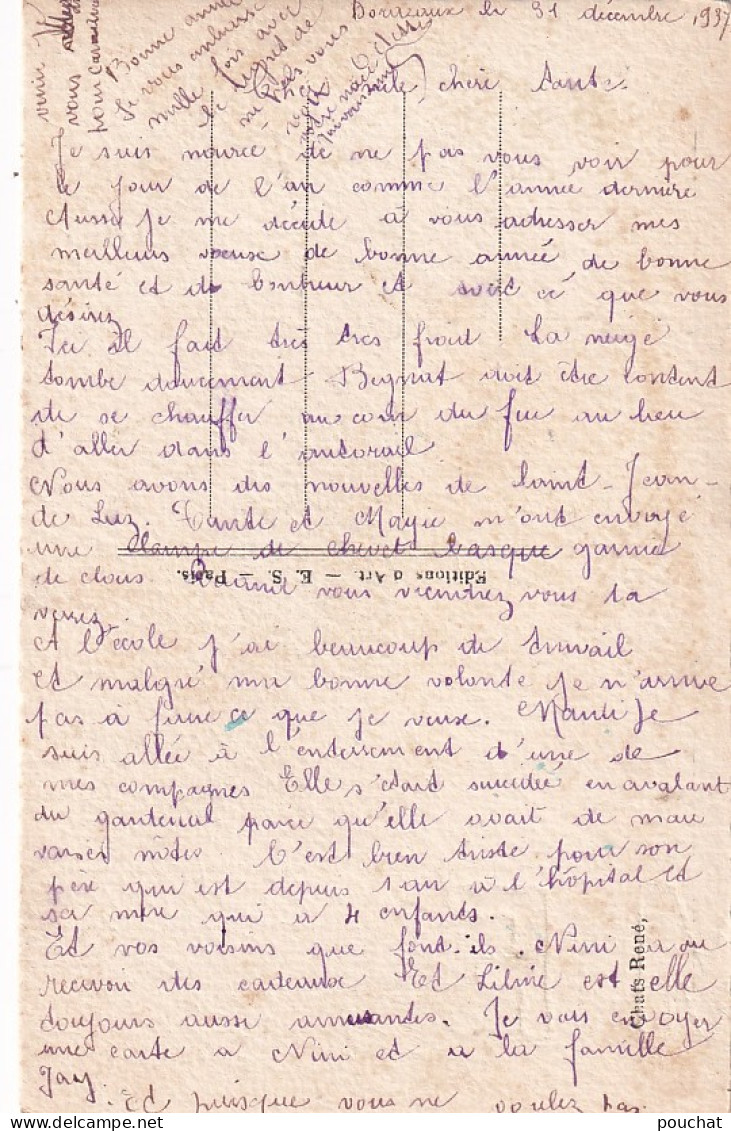 le 31 décembre 1937
chère tante
Je suis de ne pas vous voir pour
le jour de l'an comme l'année dernière
Aussi je me décide à vous adresser mes
meilleurs voeuse de bonne année de bonne
santé et de bonheur et ce que vous
désirez
Ici il fait très très froid La neige
tombe doucement doit être content
de se chauffer au coin du feu au lieu
d'aller dans l'autorail
Nous avons des nouvelles de Saint-Jean-
de Luz. Tante et Mayie m'ont envoyé
une lampe de chevet basque garnie
de clous Quand vous viendrez vous la
verrez
A l'école j'ai beaucoup de travail
et malgré ma bonne volonté je n'arrive
pas à faire ce que je veuse. Mardi je
suis allée à l'enterrement d'une de
mes compagnes Elle s'était suicidée en avalant
du gardenal parce qu'elle avait de mau
vaises notes C'est bien triste pour son
père qui est depuis 1 an à l'hôpital et
sa mère qui a 4 enfants.
Et vos voisins que font-ils. Nini a du
recevoir des cadeause Et est elle
toujours aussi amusantes. Je vais envoyer
une carte a Nini et a la famille
Jay.
Et puisque vous ne voulez pas
venir
vous
pour
Bonne année
Je vous embrasse
mille fois avec
le regret de
ne pas vous
Editions d'Art. — E. S. — Paris.
Chats René,
pouchat